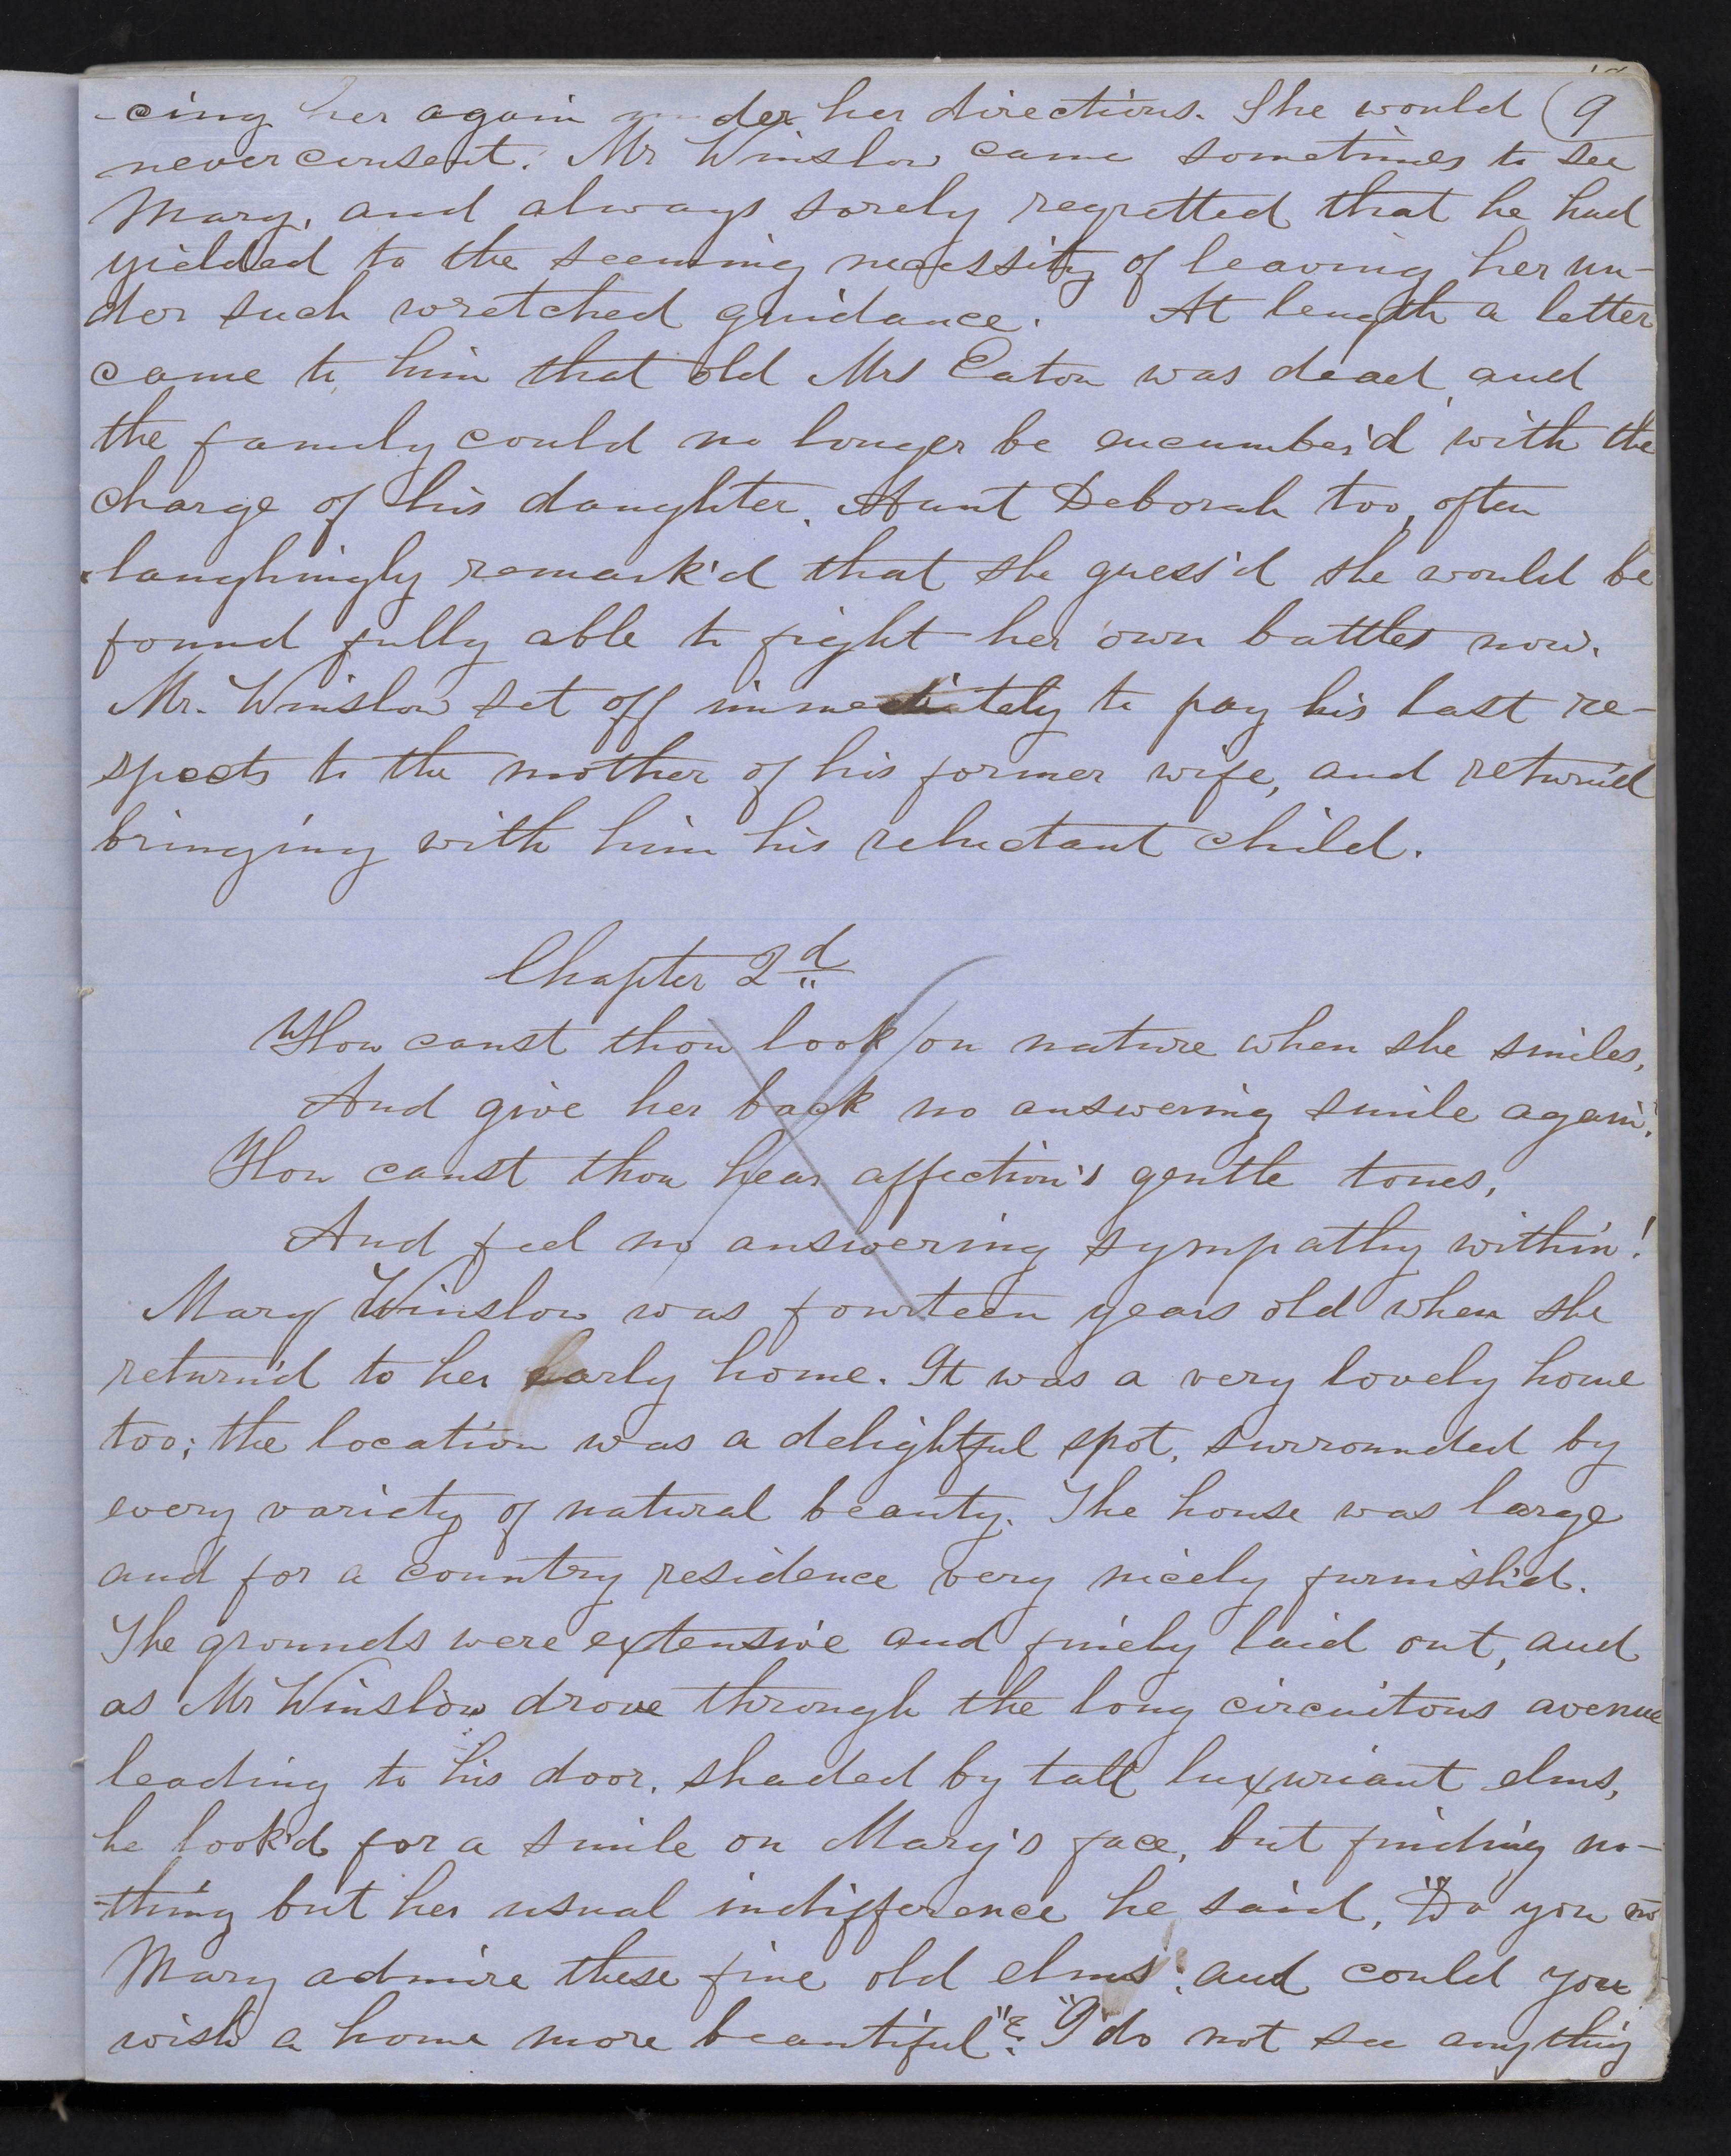 -cing her again under her directions. She would (9
never consent. Mr Winslow came sometimes to see
Mary, and always sorely regretted that he had
yielded to the seeming necessity of leaving her un-
der such wretched guidance. At length a letter
came to him that old Mrs Eaton was dead, and
the family could no longer be encumber'd with the
charge of his daughter. Aunt Deborah too, often
laughingly remark'd that she guess'd she would be
found fully able to fight her own battles now.
Mr. Winslow set off immediately to pay his last re-
spects to the mother of his former wife, and return'd
bringing with him his reluctant child.
Chapter 2d
"How canst thou look on nature when she smiles,
And give her back no answering smile again!
How canst thou hear affection's gentle tones,
And feel no answering sympathy within!
Mary Winslow was fourteen years old when she
return'd to her early home. It was a very lovely home
too; the location was a delightful spot, surrounded by
every variety of natural beauty. The house was large
and for a country residence very nicely furnish'd.
The grounds were extensive and finely laid out, and
as Mr Winslow drove through the long circuitous avenue
leading to his door, shaded by tall luxuriant elms,
he look'd for a smile on Mary's face, but finding no-
-thing but her usual indifference he said, "Do you no
Mary admire these fine old elms; and could you
wish a home more beautiful"? "I do not see anything